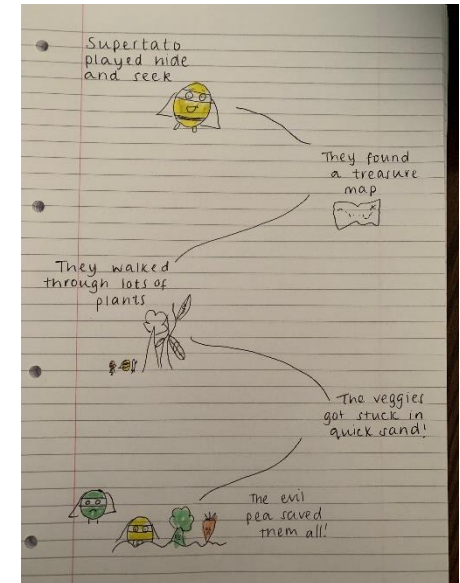 Supertato
played hide
and seek
They found
a treasure
map
They walked
through lots of
plants
The veggies
got stuck in
quick sand!
The evil
pea saved
them all!